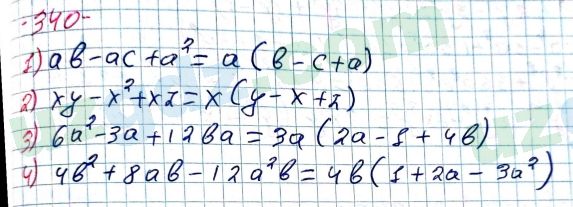 -340-
1) ab-ac+a²=a(b-c+a)
2) xy-x²+xz=x(y-x+z)
3) 6a²-3a+12ba=3a(2a-1+4b)
4) 4b²+8ab-12a²b=4b(1+2a-3a²)